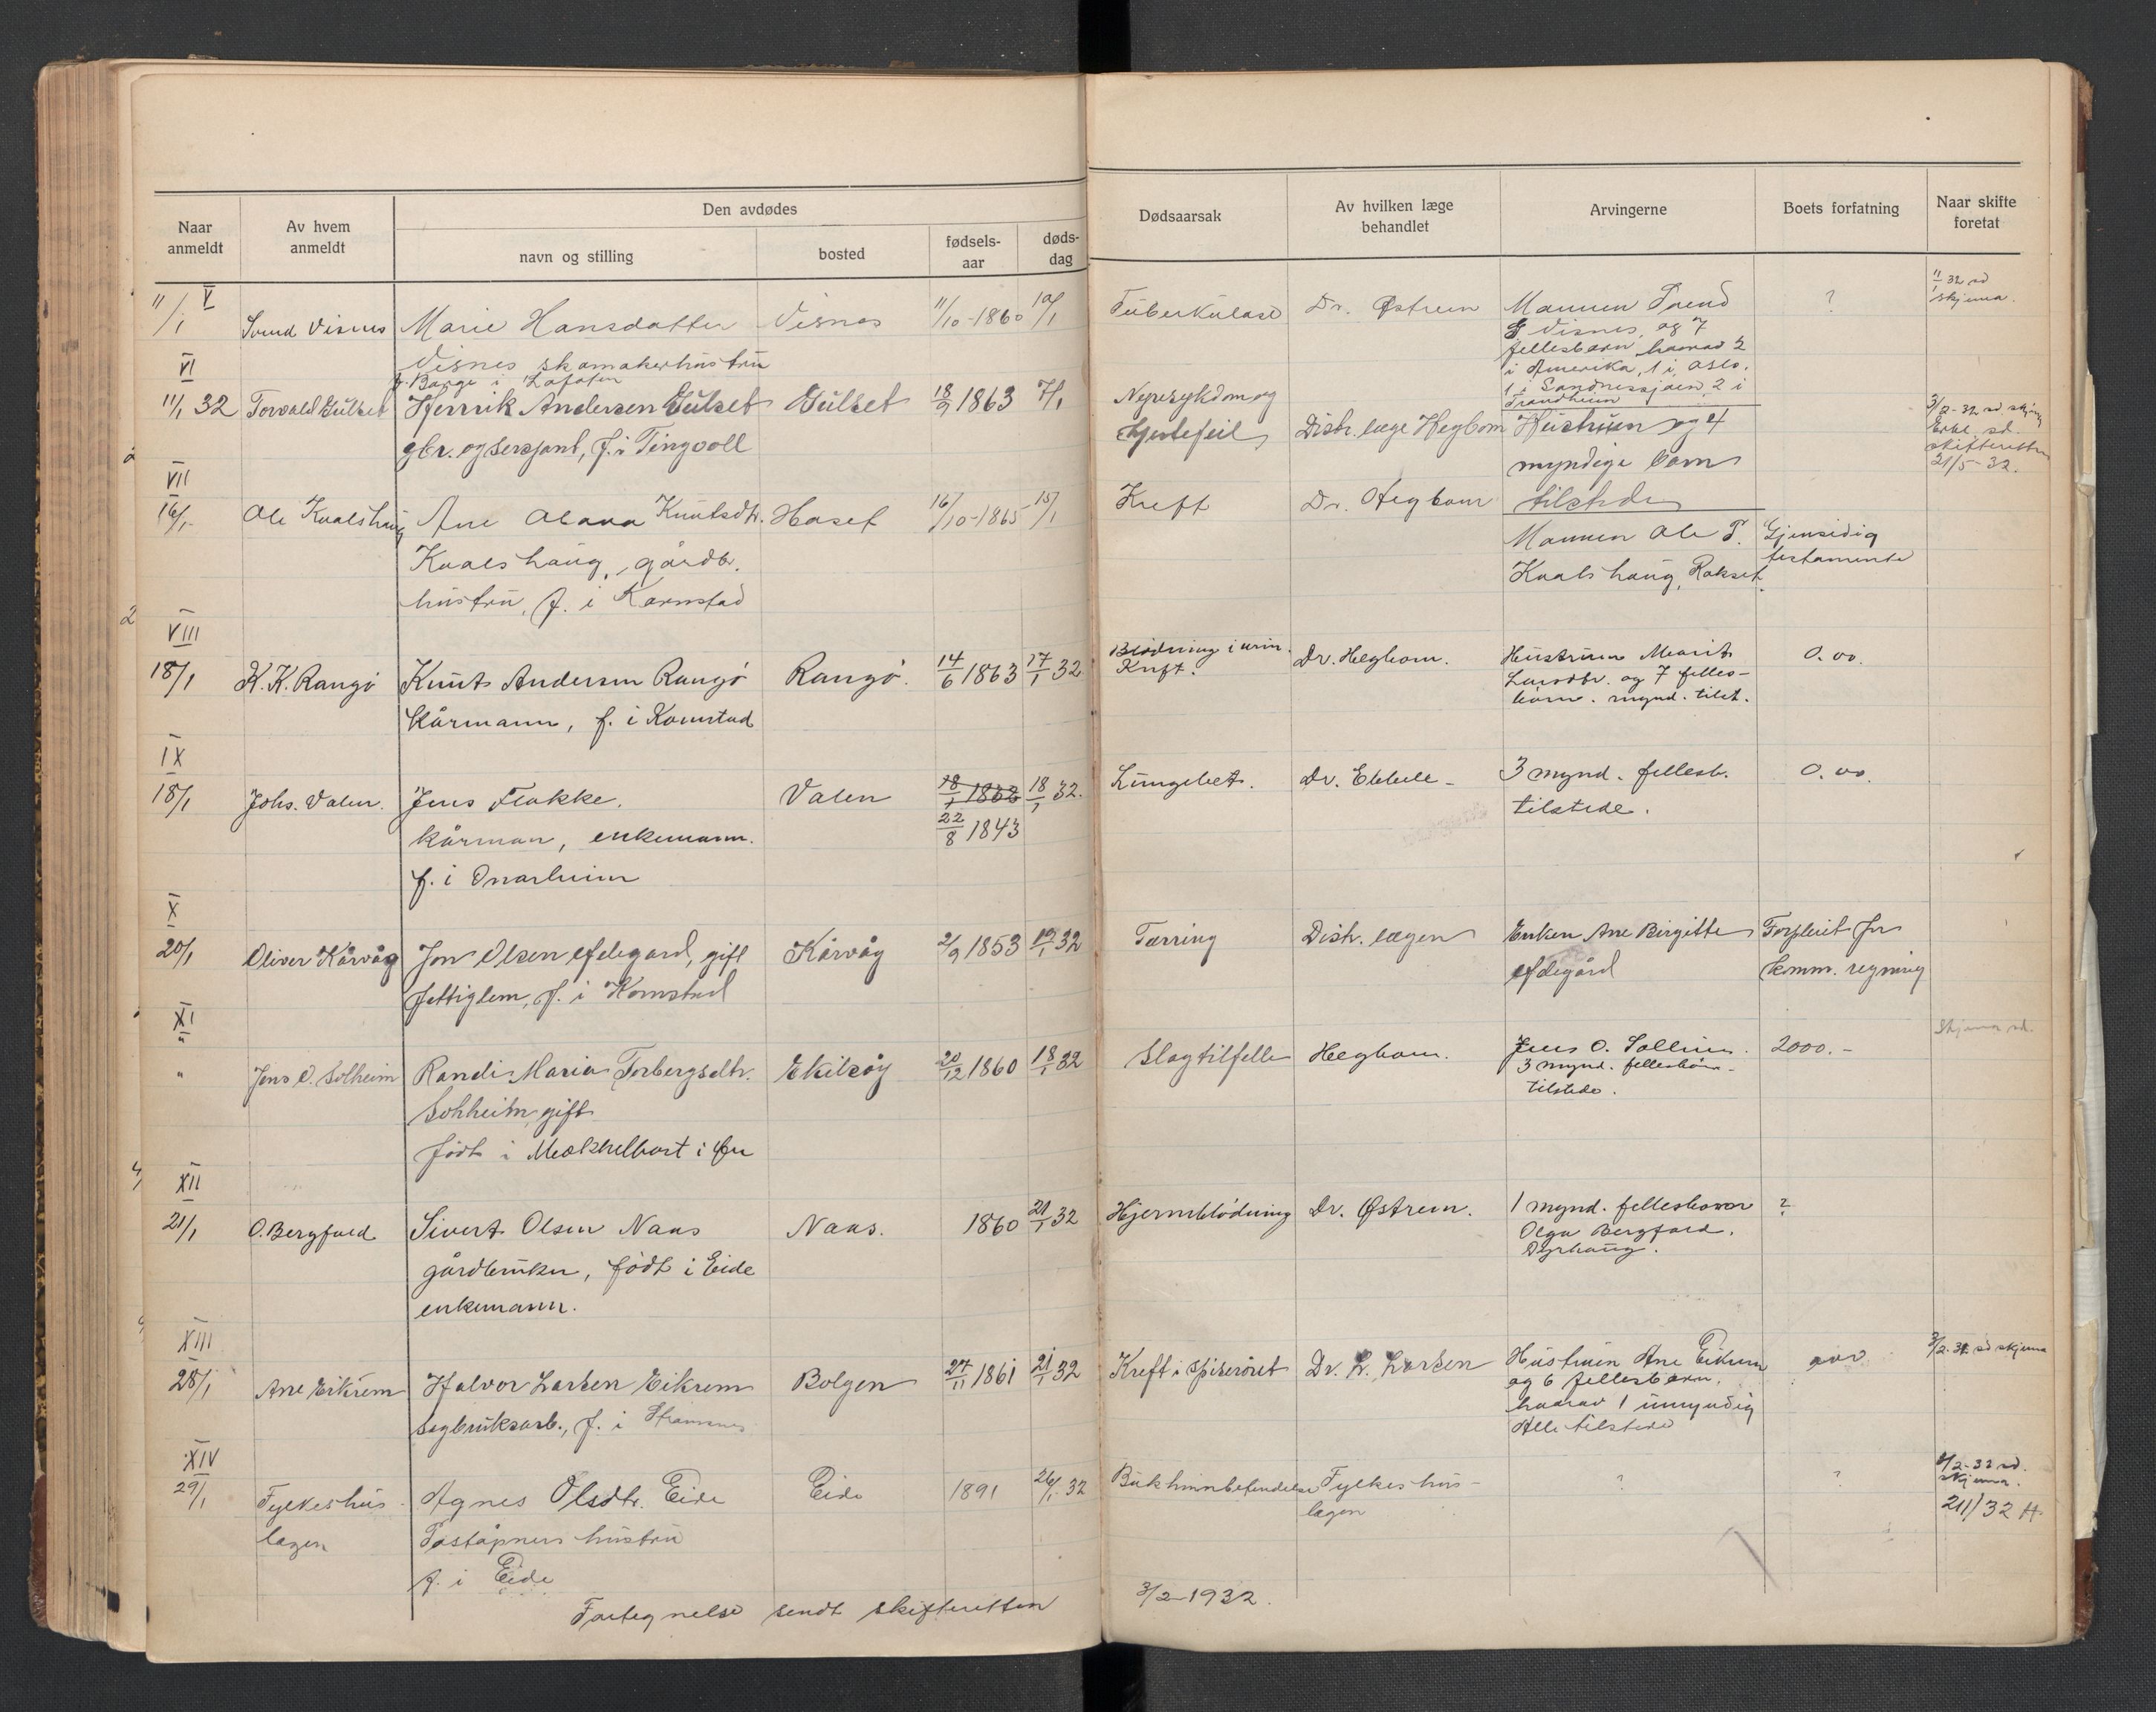 Naar anmeldt
Av hvem anmeldt
Den avdødes
navn og stilling
bosted
fødsels-aar
døds-dag
Dødsaarsak
Av hvilken læge behandlet
Arvingerne
Boets forfatning
Naar skifte foretat
V
11/1 Svend Visnes Marie Hansdatter Visnes 11/10-1860 10/1 Tuberkulose Dr. Østrem Mannen Svend ? 11/1 32 sd
Visnes skomakerhustru Visnes, og 7 skjema.
f. Borge i Lofoten fellesbarn hvorav 2
i Amerika, 1 i Oslo.
1 i Sandnessjøen 2 i
Trondheim
VI
11/1 32 Torvald Gulset Henrik Andersen Gulset Gulset 18/9 1863 7/1 Nyresykdom og 3/2-32 sd. skj
gbr. og sersjant, f. i Tingvoll Hjertefeil Distr. læge Hegbom Hustruen og 4 sd.
myndige barn skifteretten
tilstede 21/5-32.
VII
16/1 Ole Kvalshaug Ane Olava Knutsdtr. Haset 16/10-1865 15/1 Kreft Dr. Hegbom
Kvalshaug, gårdbr. Mannen Ole P. Gjensidig
hustru, f. i Kornstad Kvalshaug, Rokset. testamente
VIII
18/1 K. K. Rangø Knut Andersen Rangø Rangø. 14/6 1863 17/1 32 Blødning i urin. Dr. Hegbom. Hustruen Marit 0.00.
Kårmann, f. i Kornstad Kreft. Larsdtr. og 7 felles-
børn. mynd. tilst.
IX
18/1 Johs. Valen. Jens Flakke. Valen 18/1 1832 18/1 32. Lungebet. Dr. Ebbell - 3 mynd. fellesb. 0.00.
kårman, enkemann. 22/8 1843 tilstede.
f. i
X
20/1 Oliver Kårvåg Jon Olsen Ødegard, gift Kårvåg 2/9 1853 19/1 32 Tærring Distr. lægen Enken Ane Birgitte Forpleiet for
fattiglem, f. i Kornstad Ødegård komm. regning
XI
" " Jens O. Solheim Randi Maria Torbergsdtr. Ekilsøy 20/12 1860 18/1 32 Slagtilfelle Hegbom. Jens O. Solheim. 2000.- Skjema sd.
Solheim, gift 3 mynd. fellesbørn -
født i i Øre tilstede.
XII
21/1 O. Bergfald Sivert Olsen Naas Naas. 1860 21/1 32 Hjerneblødning Dr. Østrem. 1 mynd. fellesbarn ?
gårdbruker, født i Eide Olga Bergfald.
enkemann. Dyrhaug.
XIII
28/1 Ane Eikrem Halvor Larsen Eikrem Bolgen 27/11 1861 21/1 32 Kreft i spiserøret Dr. L. Larsen Hustruen Ane Eikrem 3/2-32 sd skjema
Sagbruksarb., f. i Straumsnes og 6 fellesbarn,
hvorav 1 umyndig
Alle tilstede
XIV
29/1 Fylkeshus- Agnes Olsdtr. Eide Eide 1891 26/1 32 Bukhinnbetendelse Fylkeshus- ? ? 4/2-32 sd.
lægen Poståpners hustru lægen skjema.
f. i Eide 211/32 H.
Fortegnelse sendt skifteretten 3/2-1932.